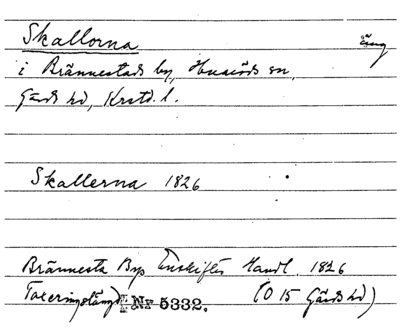 Skallorna äng
i Brännestads by, Huaröds sn,
Gärds hd, Krstd. l.
Skallerna 1826
Brännesta Bys Enskiftes Handl. 1826
Taxeringslängd (O 15 Gärds hd)
F Nr 5332.